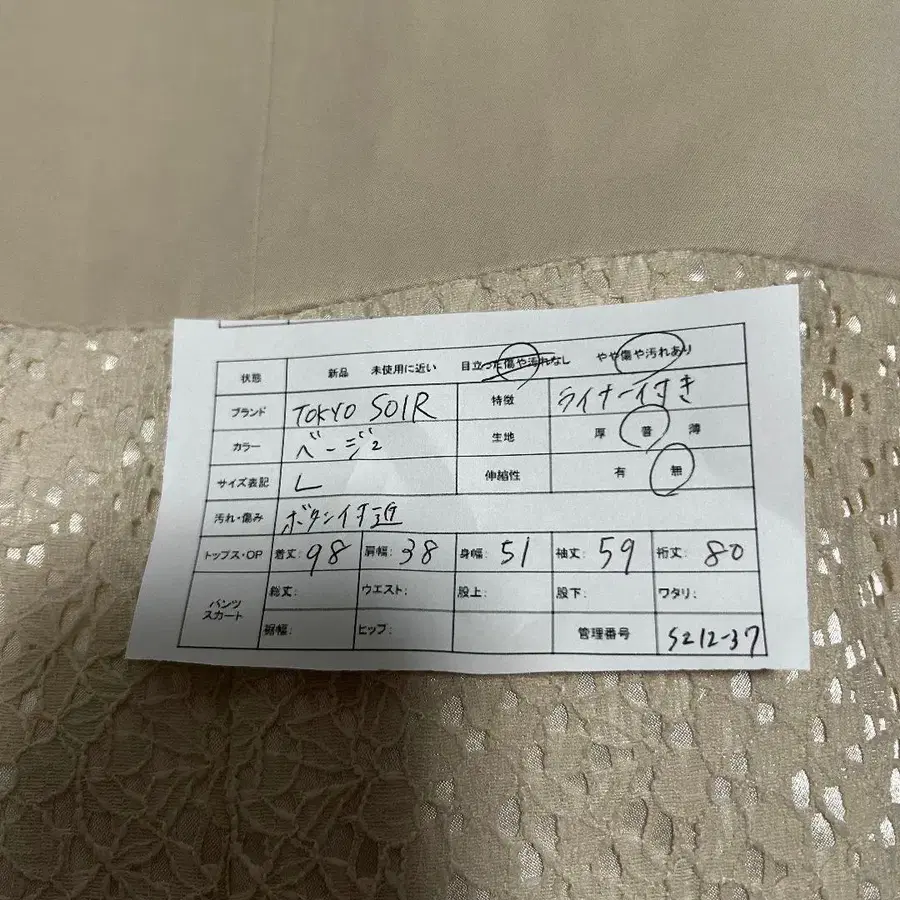 状態 新品 未使用に近い 目立った傷や汚れなし やや傷や汚れあり
ブランド TOKYO SOIR 特徴 ライナー付き
カラー ベージュ 生地 厚 普 薄
サイズ表記 L 伸縮性 有 無
汚れ・傷み ボタン付近
トップス・OP 着丈: 98 肩幅: 38 身幅: 51 袖丈: 59 裄丈: 80
パンツ スカート 総丈: ウエスト: 股上: 股下: ワタリ:
裾幅: ヒップ: 管理番号 S212-37